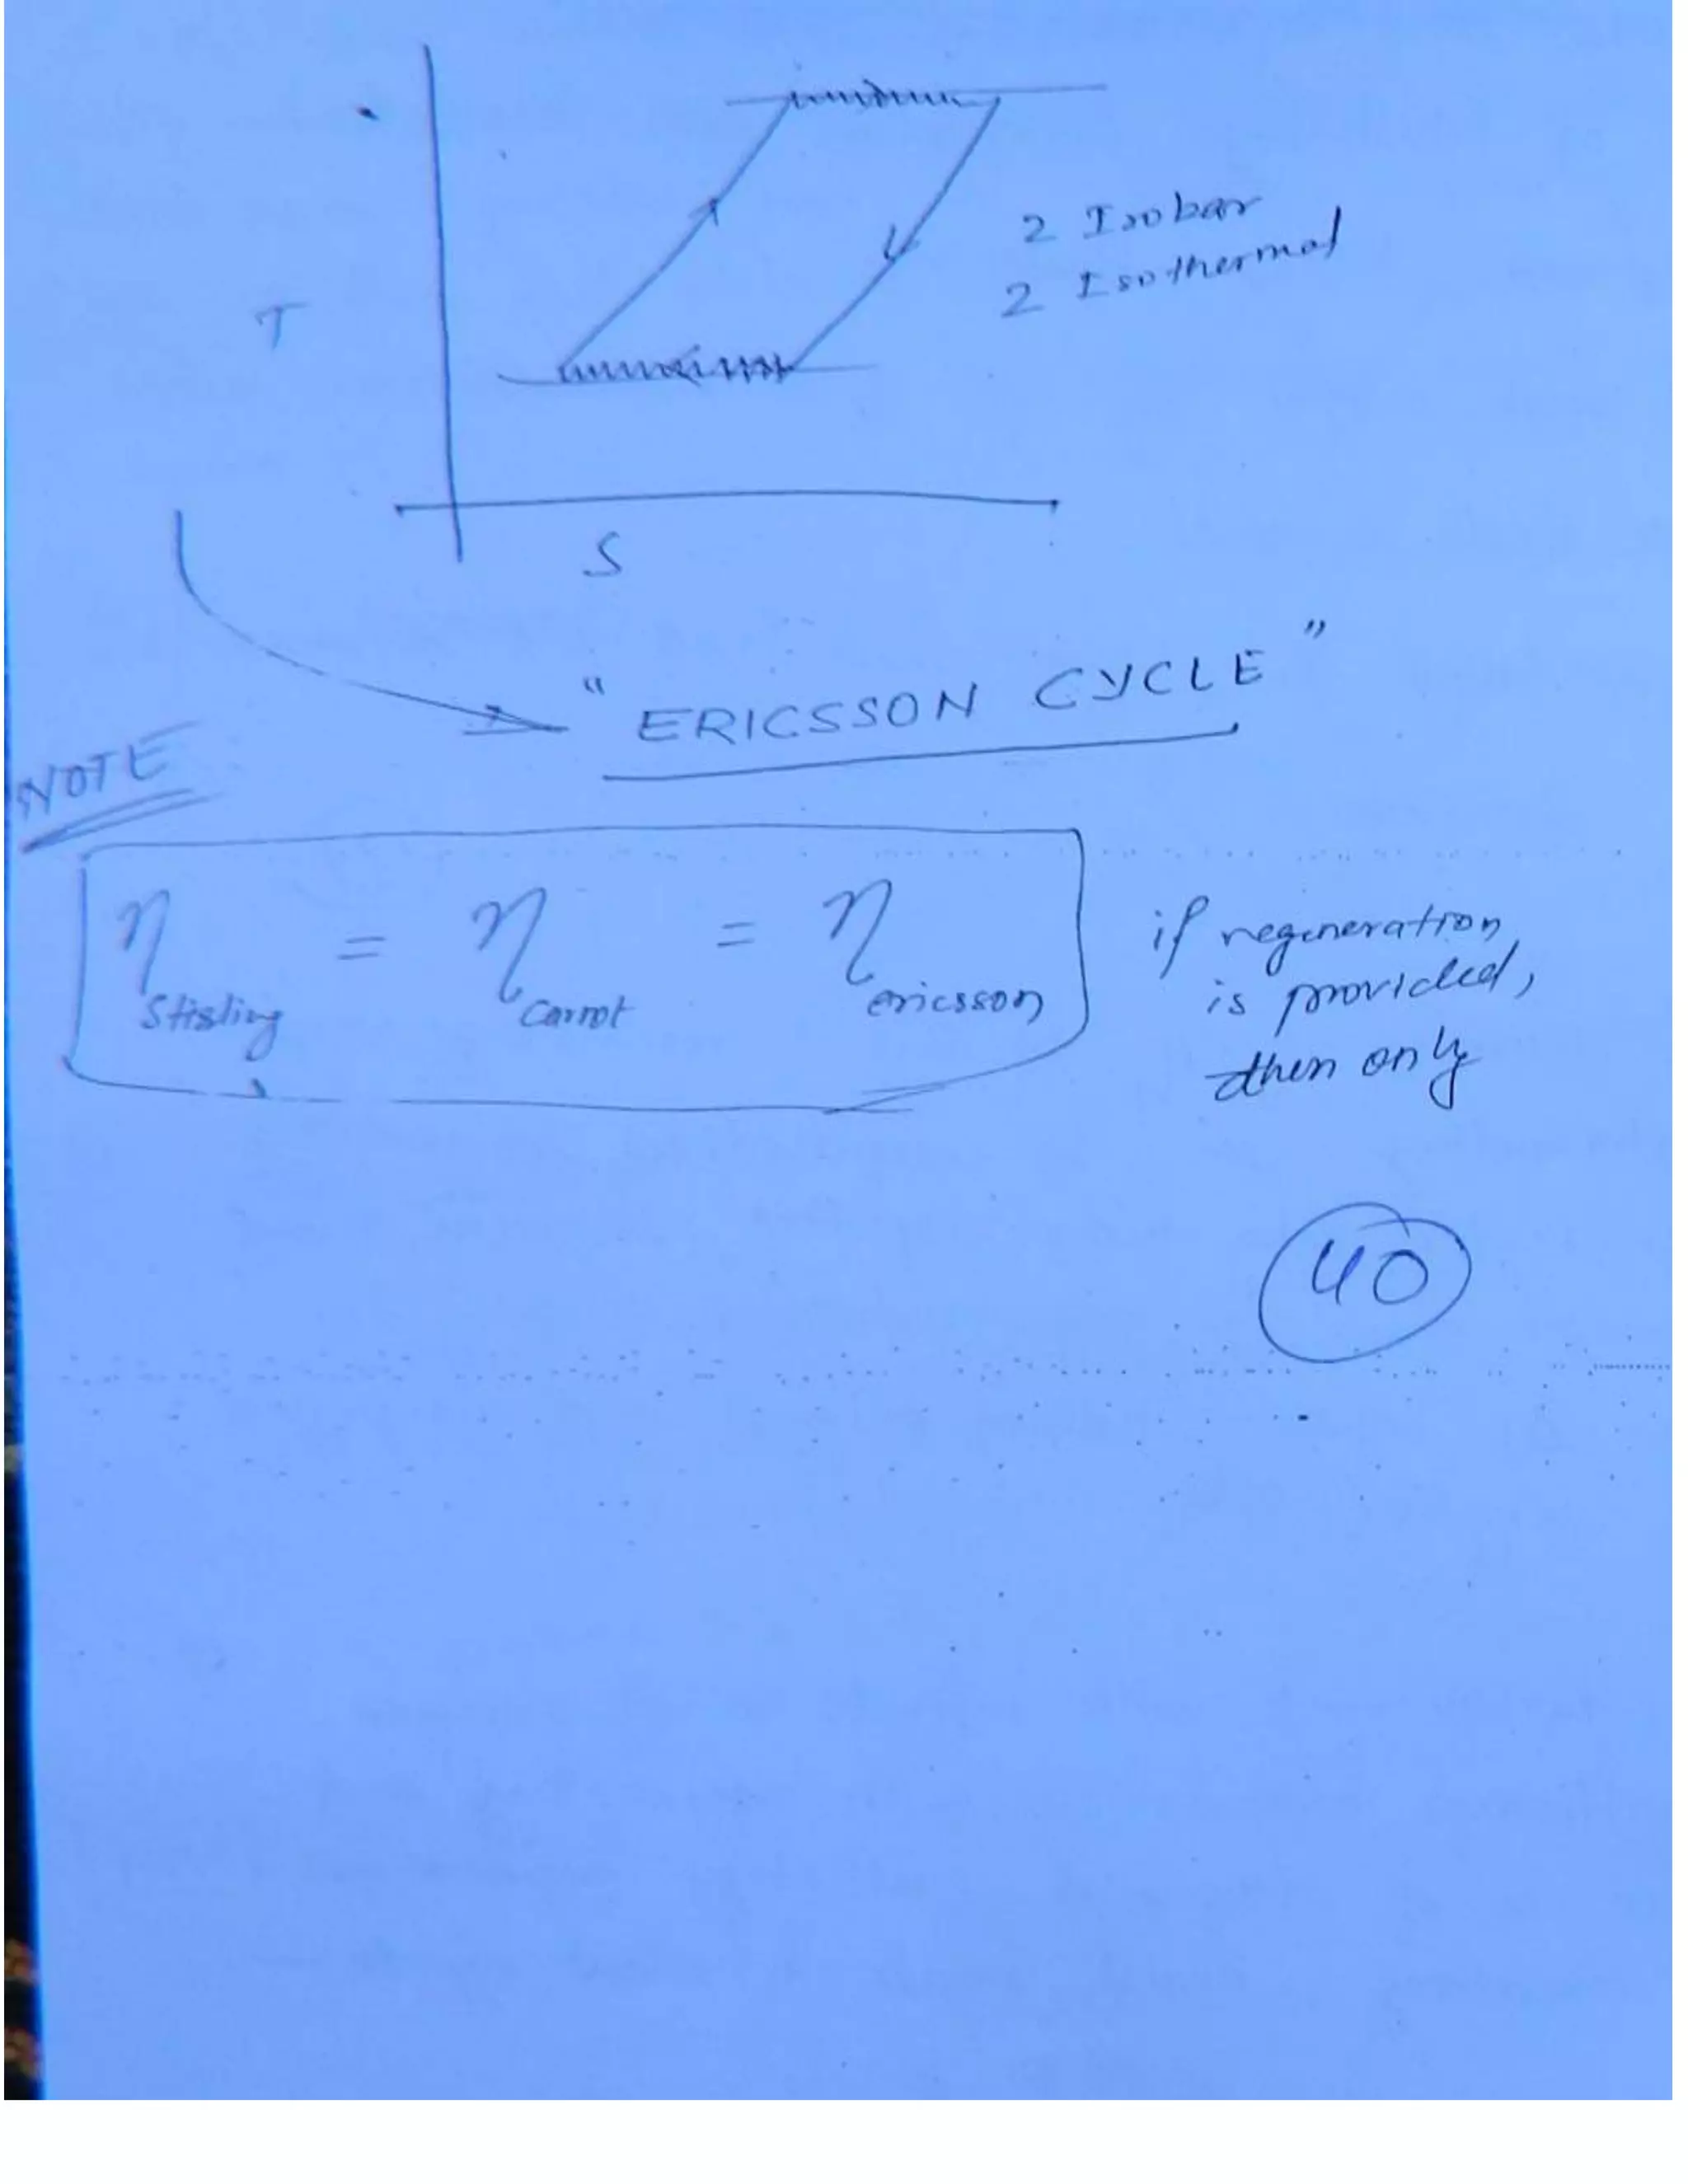 2 Isobar
2 Isothermal
T
S
" ERICSSON CYCLE "
NOTE
η Stirling = η Carnot = η ericsson
if regeneration
is provided,
then only
40